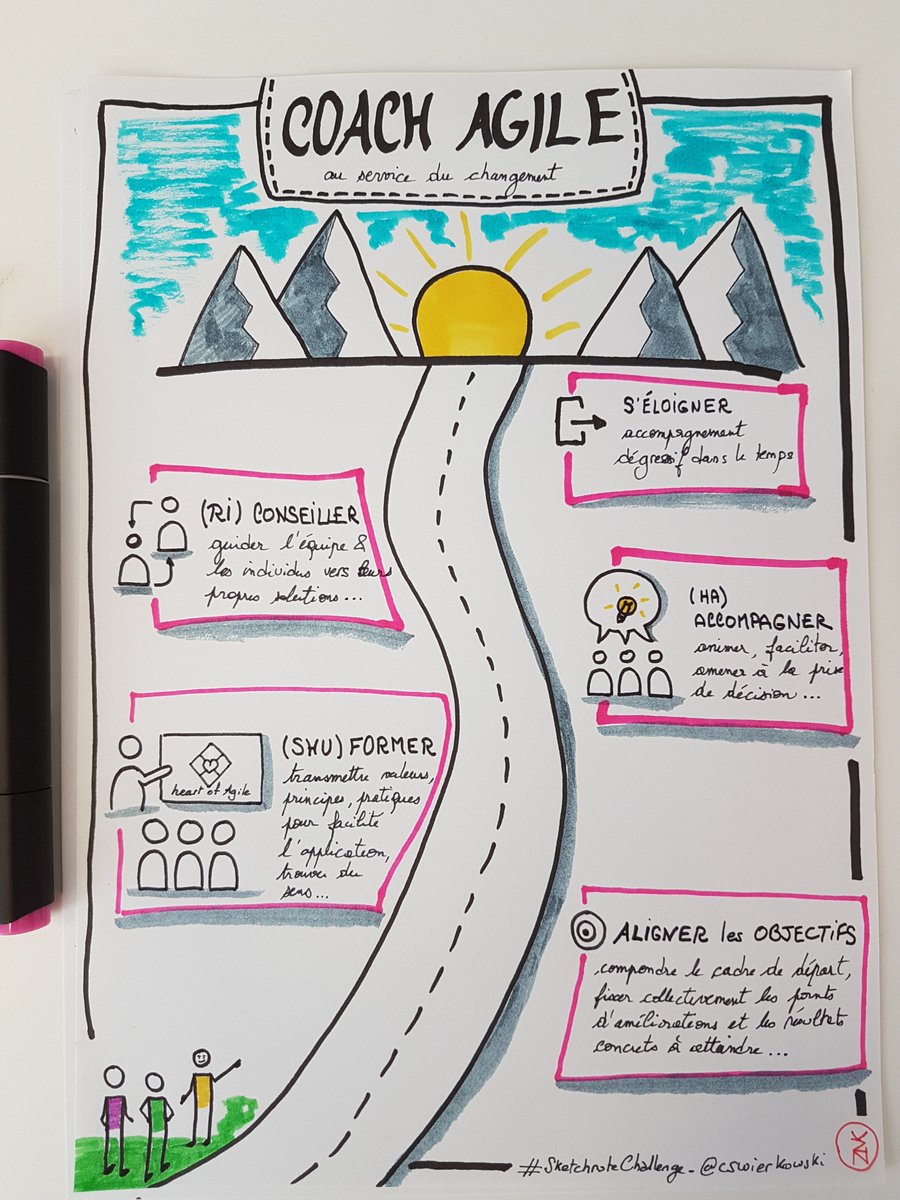 COACH AGILE
au service du changement
S'ÉLOIGNER
accompagnement
dégressif dans le temps
(RI) CONSEILLER
guider l'équipe &
les individus vers leurs
propres solutions...
(HA)
ACCOMPAGNER
animer, faciliter,
amener à la prise
de décision...
(SHU) FORMER
transmettre valeurs,
principes, pratiques
pour facilité
l'application,
trouver du
sens...
heart of Agile
ALIGNER les OBJECTIFS
comprendre le cadre de départ,
fixer collectivement les points
d'améliorations et les résultats
concrets à atteindre...
#SketchnoteChallenge - @cswierkowski